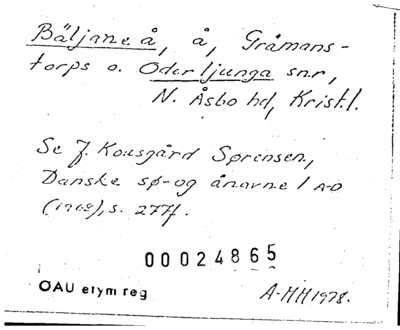 Bäljane å, å, Gråmans-
torps o. Oderljunga snr,
N. Åsbo hd, Krist.l.
Se J. Kousgård Sørensen,
Danske sø- og ånavne 1 A-D
(1968), s. 277f.
00024865
OAU etym reg
A-HH 1978.